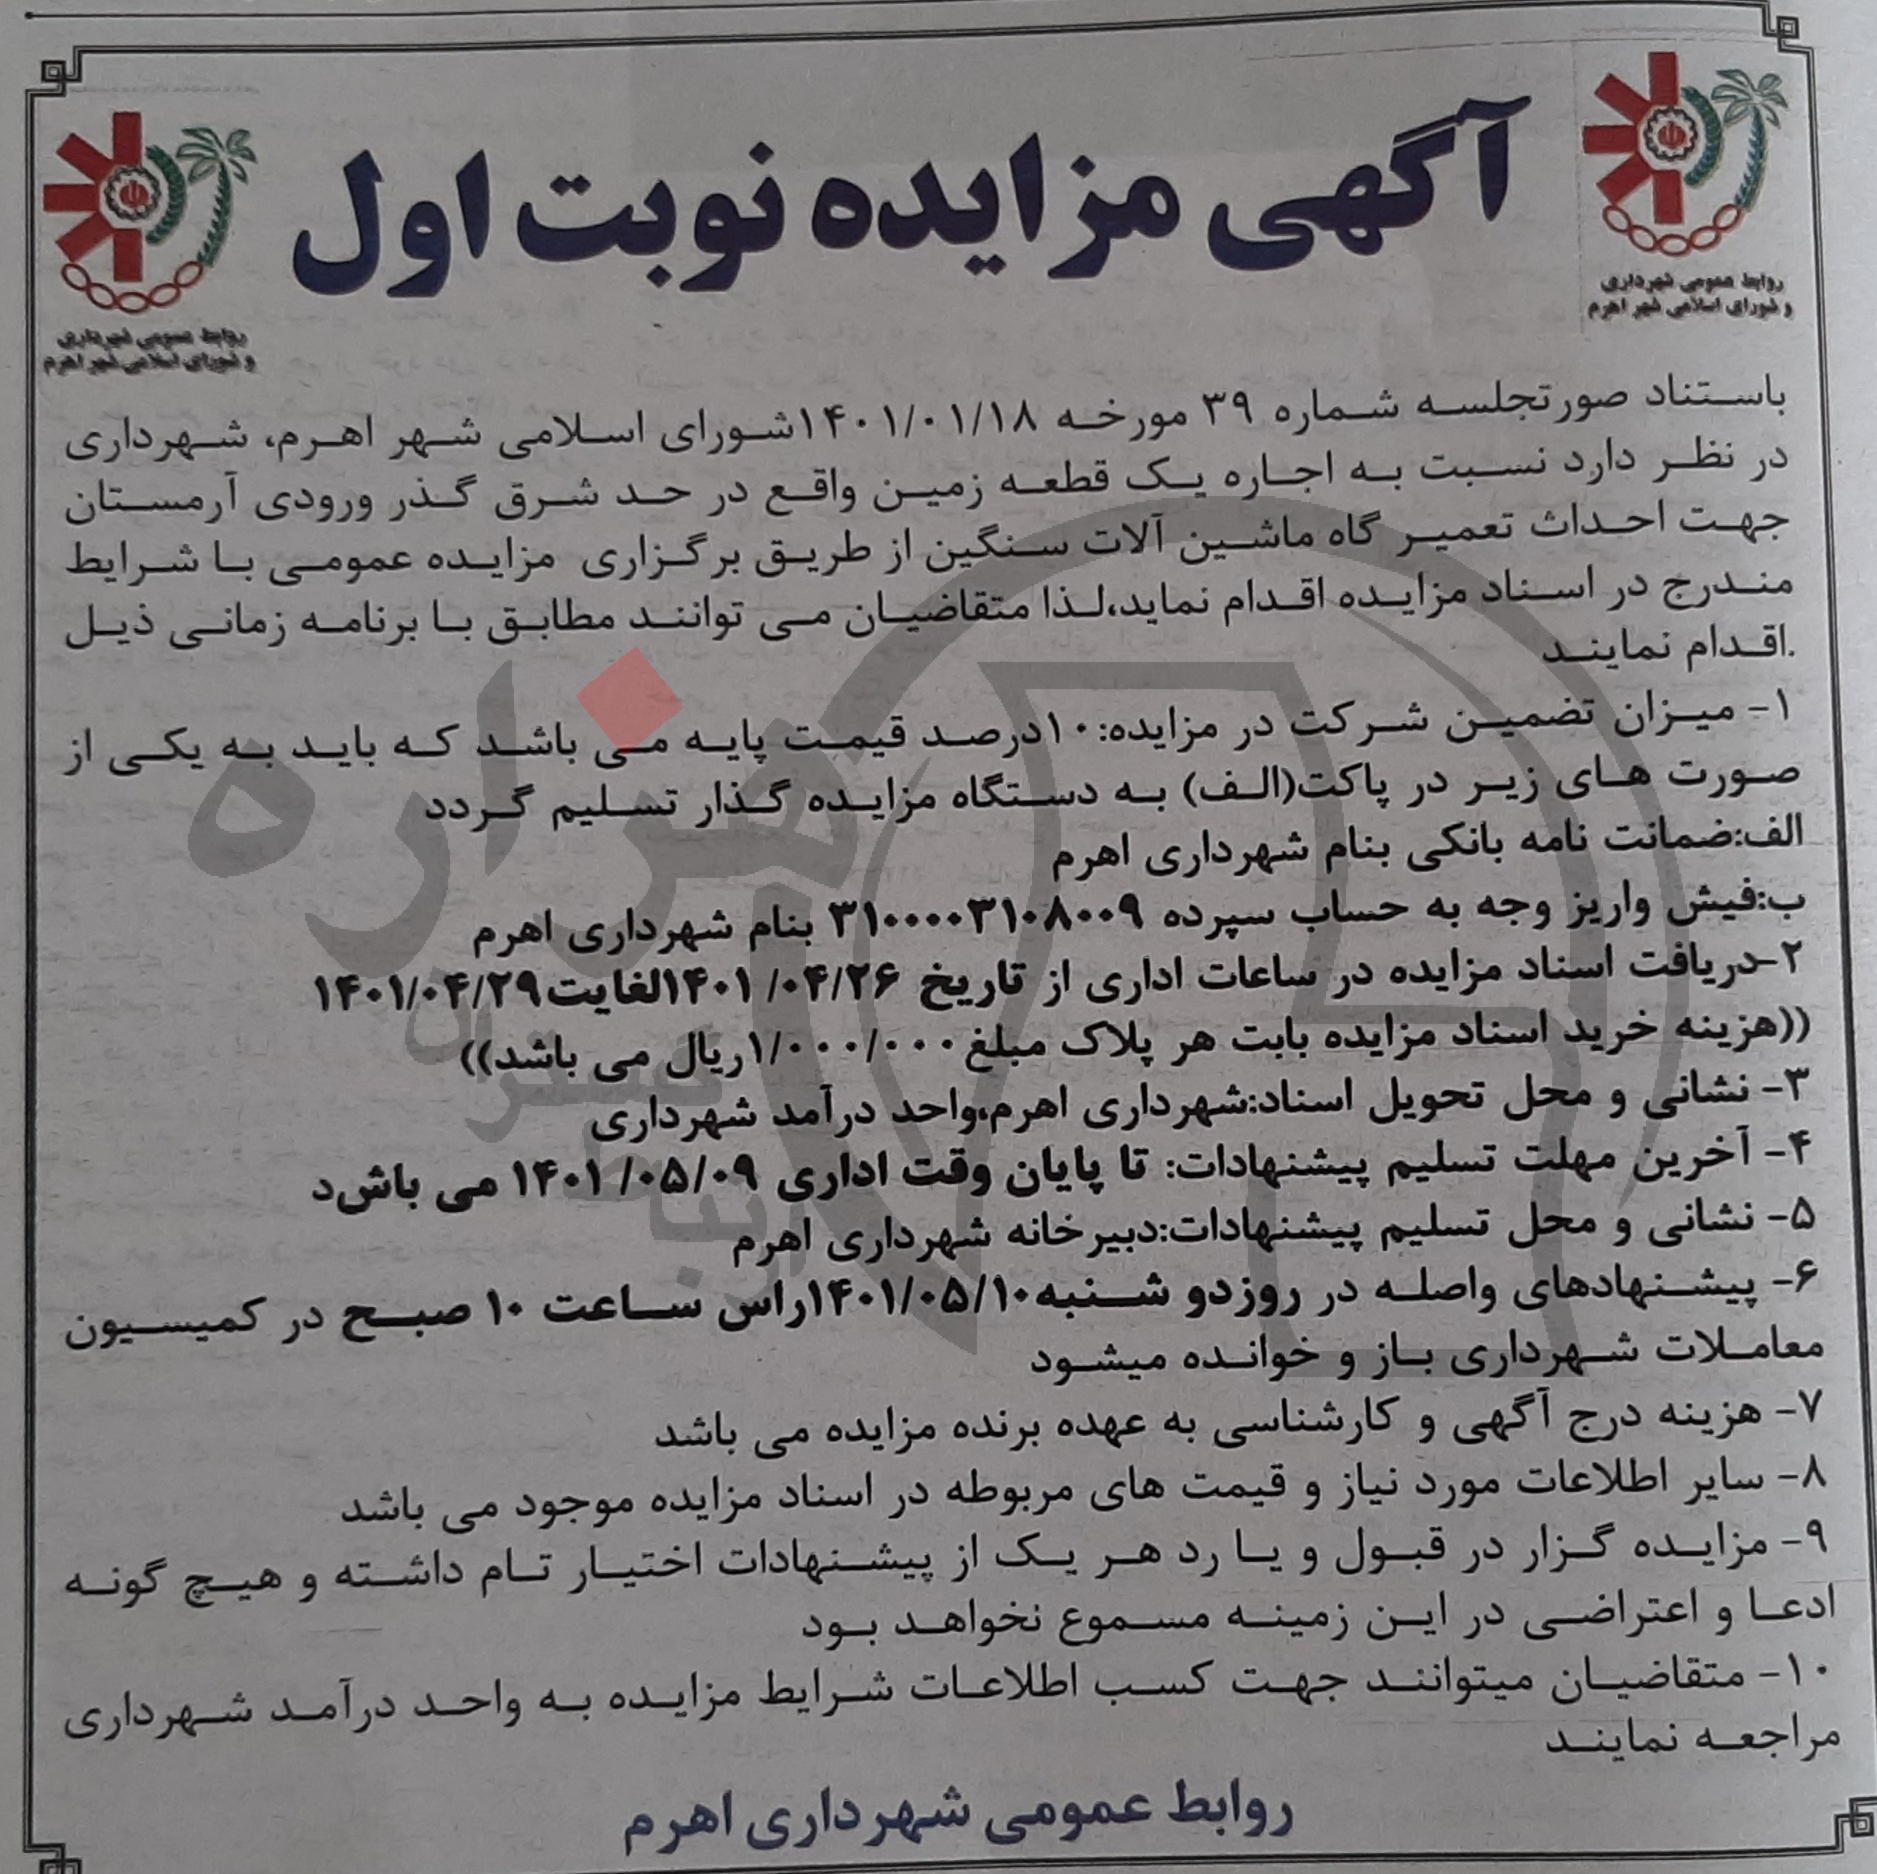 آگهی مزایده نوبت اول
روابط عمومی شهرداری
و شورای اسلامی شهر اهرم
روابط عمومی شهرداری
و شورای اسلامی شهر اهرم
باستناد صورتجلسه شماره ۳۹ مورخه ۱۴۰۱/۰۱/۱۸شورای اسلامی شهر اهرم، شهرداری
در نظر دارد نسبت به اجاره یک قطعه زمین واقع در حد شرق گذر ورودی آرمستان
جهت احداث تعمیر گاه ماشین آلات سنگین از طریق برگزاری مزایده عمومی با شرایط
مندرج در اسناد مزایده اقدام نماید،لذا متقاضیان می توانند مطابق با برنامه زمانی ذیل
.اقدام نمایند
۱- میزان تضمین شرکت در مزایده:۱۰درصد قیمت پایه می باشد که باید به یکی از
صورت های زیر در پاکت(الف) به دستگاه مزایده گذار تسلیم گردد
الف:ضمانت نامه بانکی بنام شهرداری اهرم
ب:فیش واریز وجه به حساب سپرده ۳۱۰۰۰۰۳۱۰۸۰۰۹ بنام شهرداری اهرم
۲-دریافت اسناد مزایده در ساعات اداری از تاریخ ۱۴۰۱/۰۴/۲۶لغایت۱۴۰۱/۰۴/۲۹
((هزینه خرید اسناد مزایده بابت هر پلاک مبلغ۱/۰۰۰/۰۰۰ریال می باشد))
۳- نشانی و محل تحویل اسناد:شهرداری اهرم،واحد درآمد شهرداری
۴- آخرین مهلت تسلیم پیشنهادات: تا پایان وقت اداری ۱۴۰۱/۰۵/۰۹ می باش‌د
۵- نشانی و محل تسلیم پیشنهادات:دبیرخانه شهرداری اهرم
۶- پیشنهادهای واصله در روزدو شنبه۱۴۰۱/۰۵/۱۰راس ساعت ۱۰ صبح در کمیسیون
معاملات شهرداری باز و خوانده میشود
۷- هزینه درج آگهی و کارشناسی به عهده برنده مزایده می باشد
۸- سایر اطلاعات مورد نیاز و قیمت های مربوطه در اسناد مزایده موجود می باشد
۹- مزایده گزار در قبول و یا رد هر یک از پیشنهادات اختیار تام داشته و هیچ گونه
ادعا و اعتراضی در این زمینه مسموع نخواهد بود
۱۰- متقاضیان میتوانند جهت کسب اطلاعات شرایط مزایده به واحد درآمد شهرداری
مراجعه نمایند
روابط عمومی شهرداری اهرم
هزاره